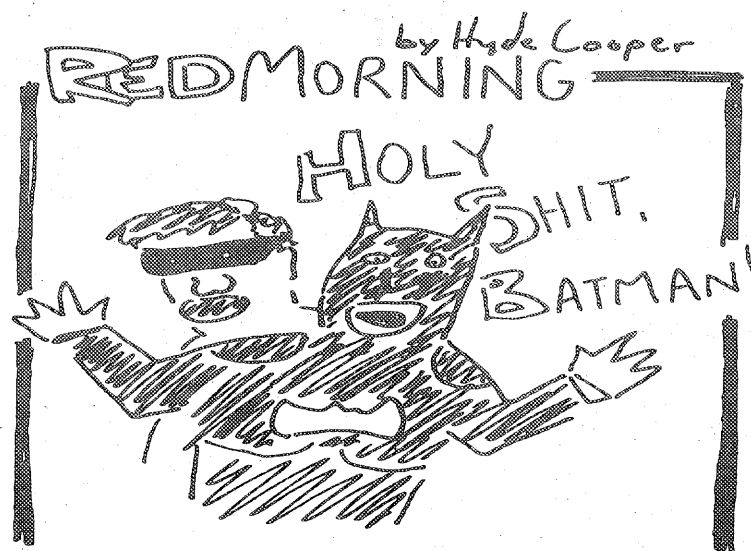 by Hyde Cooper
RED MORNING
HOLY
SHIT,
BATMAN!